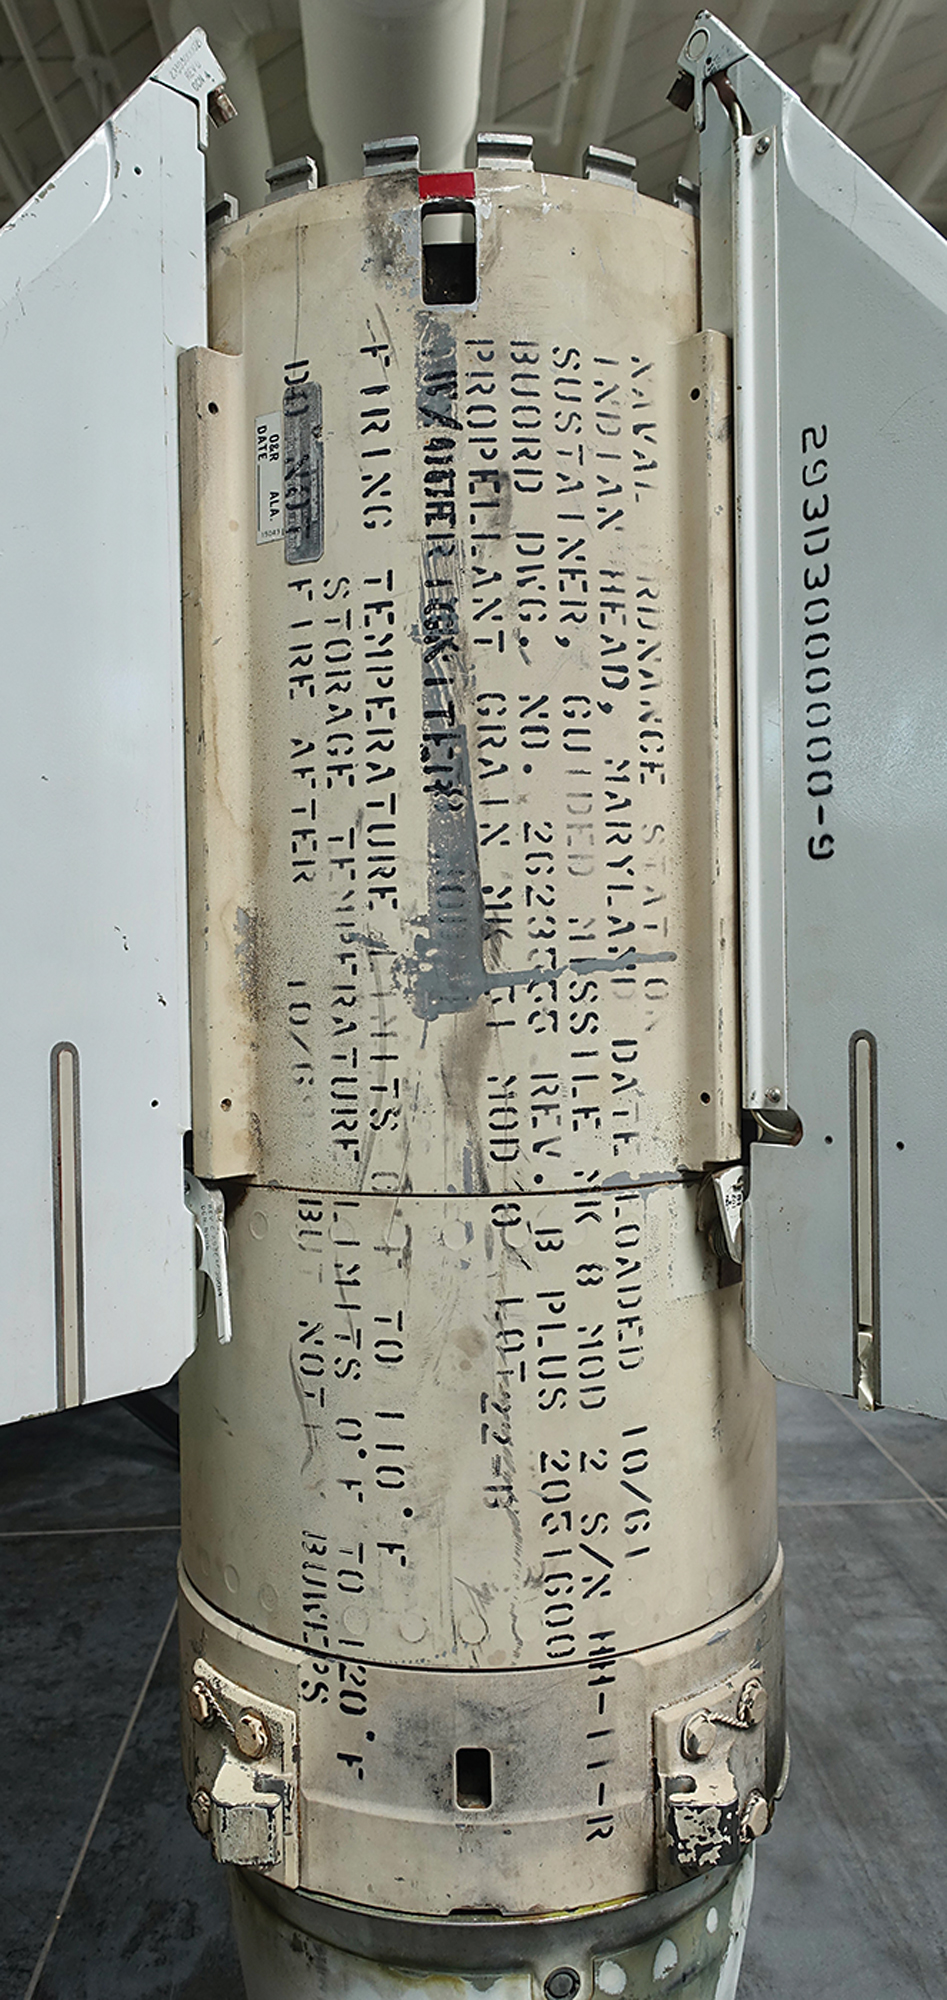 NAVAL ORDNANCE STATION
INDIAN HEAD, MARYLAND DATE LOADED 10/61
SUSTAINER, GUIDED MISSILE MK 8 MOD 2 S/N HH-11-R
BUORD DWG. NO. 2623555 REV. B PLUS 2051600
PROPELLANT GRAIN MK 51 MOD 0/ LOT
FIRING TEMPERATURE LIMITS 0°F TO 110°F
STORAGE TEMPERATURE LIMITS 0°F TO 120°F
DO NOT FIRE AFTER 10/6 BUT NOT BUWEPS
O&R ALA.
DATE
293D300000-9